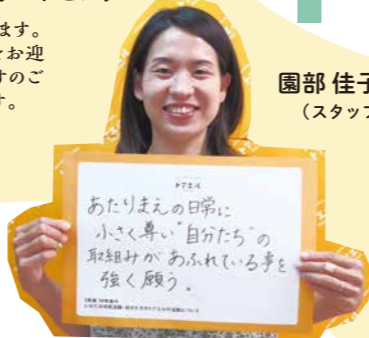 ます。
お迎
すのご
す。
園部 佳子
(スタッフ
あたりまえの日常に
小さく尊い"自分たち"の
取組みがあふれている事を
強く願う。